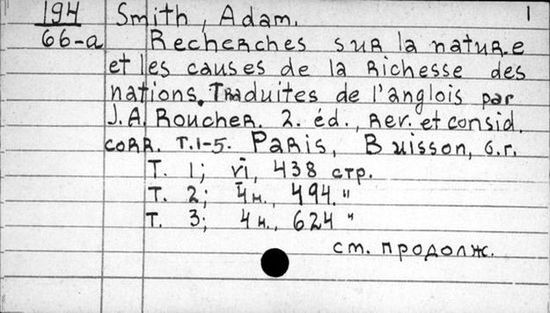 194 Smith, Adam. 1
66-a Recherches sur la nature
et les causes de la richesse des
nations. Traduites de l'anglois par
J.A. Roucher. 2. éd., rev. et consid.
corr. T.1-5. Paris, Buisson, б.г.
Т. 1; vi, 438 стр.
Т. 2; 4н., 494. "
Т. 3; 4н., 624 "
см. продолж.